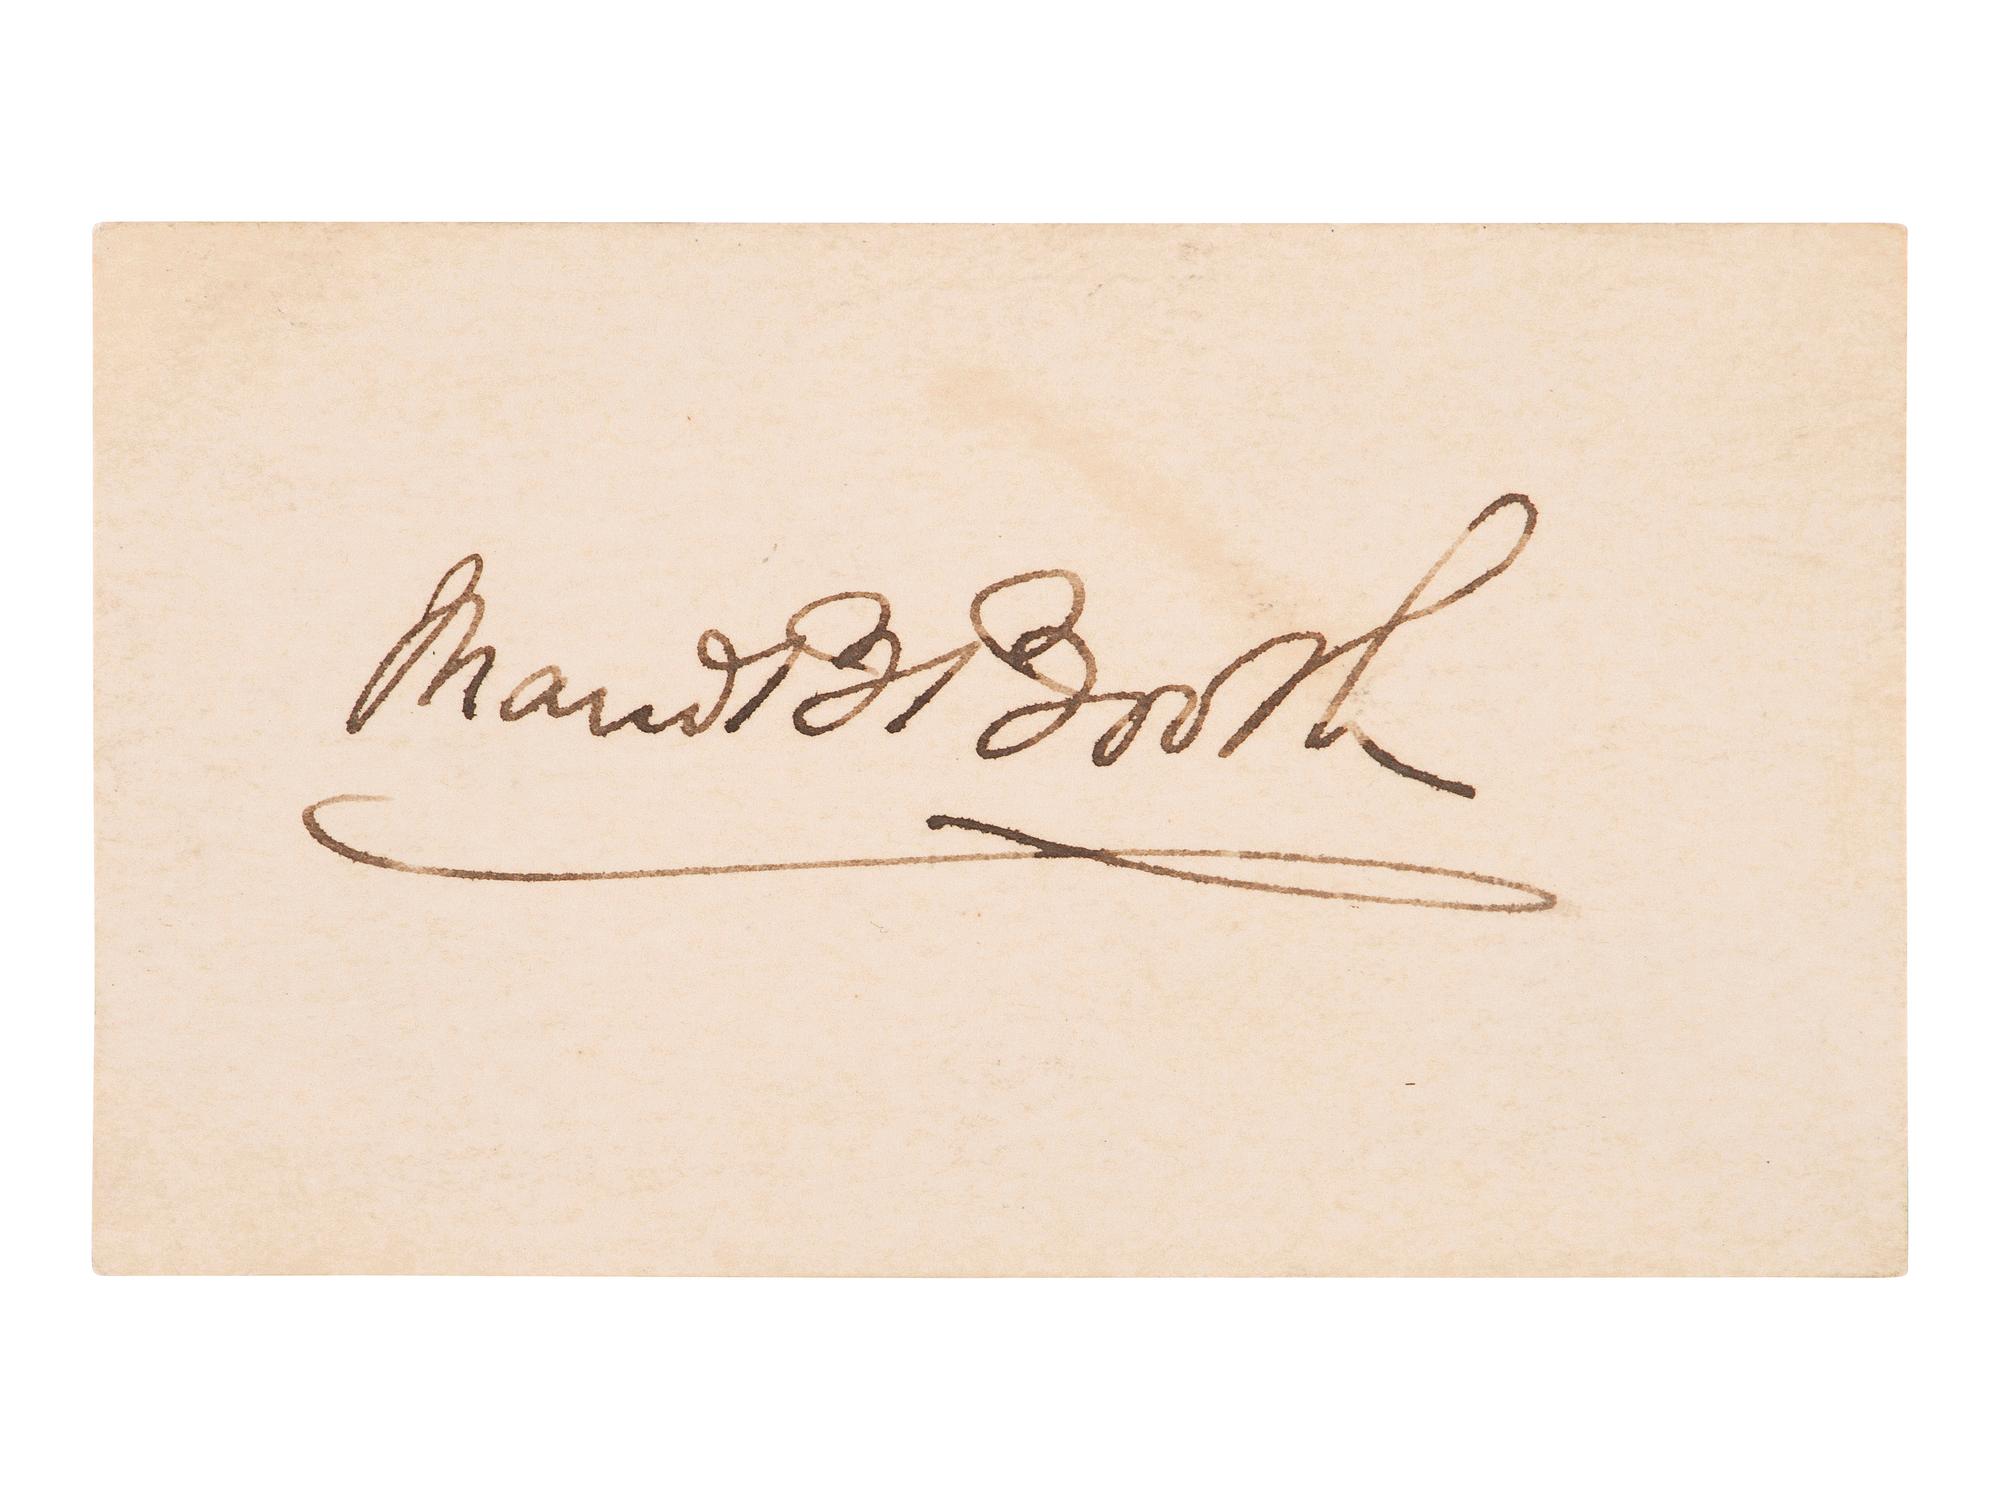 Maud B Booth